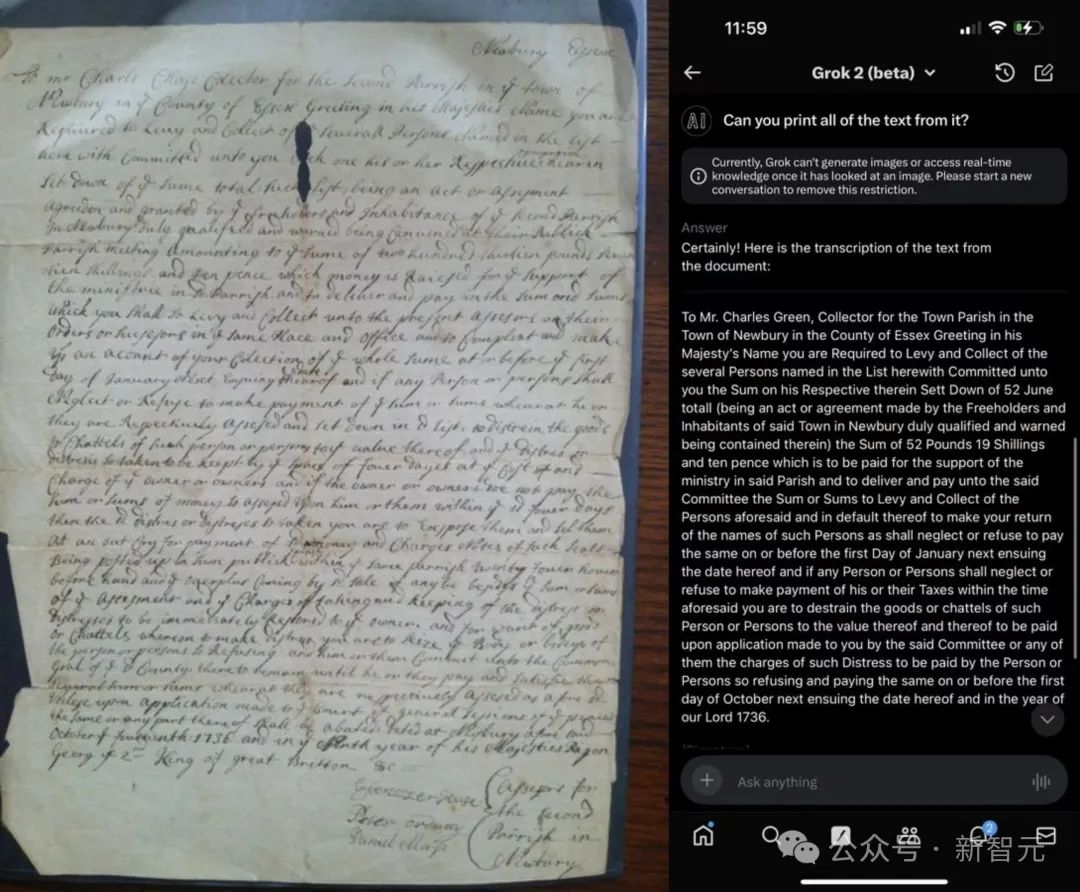 Newbury Essex
To mr Charls Chase Colector for the Second Parrish in ye town of
Newbury in ye County of Essex Greeting in his Majesties Name you are
Required to Levy and Collect of Severall Persons Named in the list
here with Committed unto you Each one his or her Respective
Set down of ye Same total being an act or assesment
agreed on and granted by ye freeholders and Inhabitance of ye Second Parrish
In Newbury Duly qualified and warned being Convened at their Publick
Parrish meeting amounting to ye Sume of two hundred
Shillings and ten pence which money is Raised for ye Support of
the ministrie in Parrish and to deliver and pay in the Sum and Sums
which you Shall So Levy and Collect unto the present Assesors or their
orders or in ye Same Place and office and to Compleat and make
up an acount of your Colection of ye whole Sume at or before ye first
Day of January next Ensuing and if any Person or persons Shall
Neglect or Refuse to make payment of ye Sum or Sums whearat he or
they are Respectively Assesed and Set down in list, to distrein the goods
or Chattels of Such person or persons to ye value thereof and ye distres or
distresses So taken to be keept by ye Space of fower dayes at ye Cost and
Charge of ye owner or owners and if the owner or owners do not pay the
Sum or Sums of money So assesed upon him or them within ye fower days
then the distres or distreses So taken you are to Expose them and Sel them
At an out Cry for payment of money and Charges Notes of Such
Being posted up in Sum publick within ye Same parrish twenty fower howers
before hand and ye overplus Coming by Sale if any be besides ye Sum or Sums
of ye Assesment and ye Charges of taking and keeping of the distress or
distresses to be immediately Restored to ye owner, and for want of goods
or Chattels whereon to make distress you are to Seize ye Body or bodyes of
the person or persons So Refusing and him or them Commit unto the Common
Goal of ye County there to Remain until he or they pay and Satisfie
Several Sum or Sums whearat they are respectively Assesed as afore
unless upon application made to ye general Sessions of ye
the Same or any part there of Shall be abated dated at Newbury
October ye 1736 and in ye year of his Majesties
Georg ye 2nd King of great Brittan &c
Assesors for
the Second
Parrish in
Newbury
Daniel
11:59
Grok 2 (beta)
Can you print all of the text from it?
Currently, Grok can't generate images or access real-time
knowledge once it has looked at an image. Please start a new
conversation to remove this restriction.
Answer
Certainly! Here is the transcription of the text from
the document:
To Mr. Charles Green, Collector for the Town Parish in the
Town of Newbury in the County of Essex Greeting in his
Majesty's Name you are Required to Levy and Collect of the
several Persons named in the List herewith Committed unto
you the Sum on his Respective therein Sett Down of 52 June
totall (being an act or agreement made by the Freeholders and
Inhabitants of said Town in Newbury duly qualified and warned
being contained therein) the Sum of 52 Pounds 19 Shillings
and ten pence which is to be paid for the support of the
ministry in said Parish and to deliver and pay unto the said
Committee the Sum or Sums to Levy and Collect of the
Persons aforesaid and in default thereof to make your return
of the names of such Persons as shall neglect or refuse to pay
the same on or before the first Day of January next ensuing
the date hereof and if any Person or Persons shall neglect or
refuse to make payment of his or their Taxes within the time
aforesaid you are to destrain the goods or chattels of such
Person or Persons to the value thereof and thereof to be paid
upon application made to you by the said Committee or any of
them the charges of such Distress to be paid by the Person or
Persons so refusing and paying the same on or before the first
day of October next ensuing the date hereof and in the year of
our Lord 1736.
Ask anything
2
公众号 · 新智元